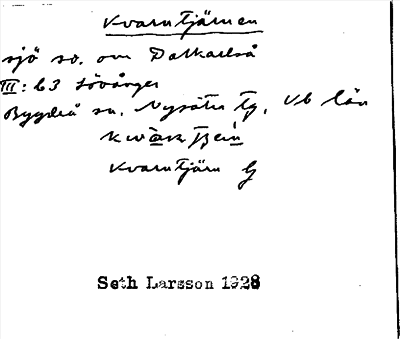 Kvarntjärnen
sjö so. om Dalkarlså
III: 63 Lövånger
Bygdeå sn. Nysätra tg. Vb län
Kvarntjärn G
Seth Larsson 1928